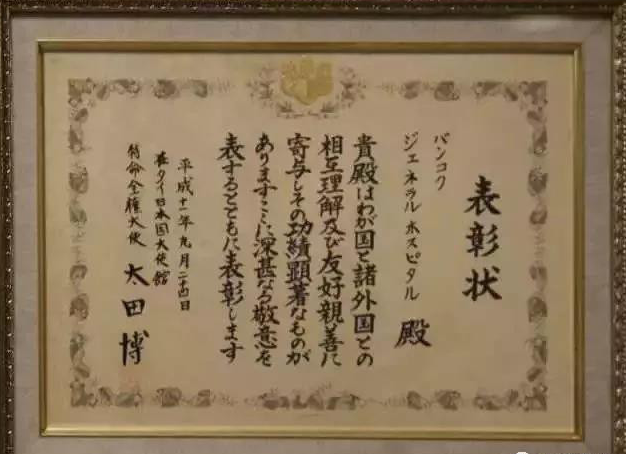 表彰状
バンコク
ジェネラル ホスピタル 殿
貴殿はわが国と諸外国との
相互理解及び友好親善に
寄与しその功績顕著なものが
ありますここに深甚なる敬意を
表するとともに表彰します
平成十一年九月二十四日
在タイ日本国大使館
特命全権大使 太田博